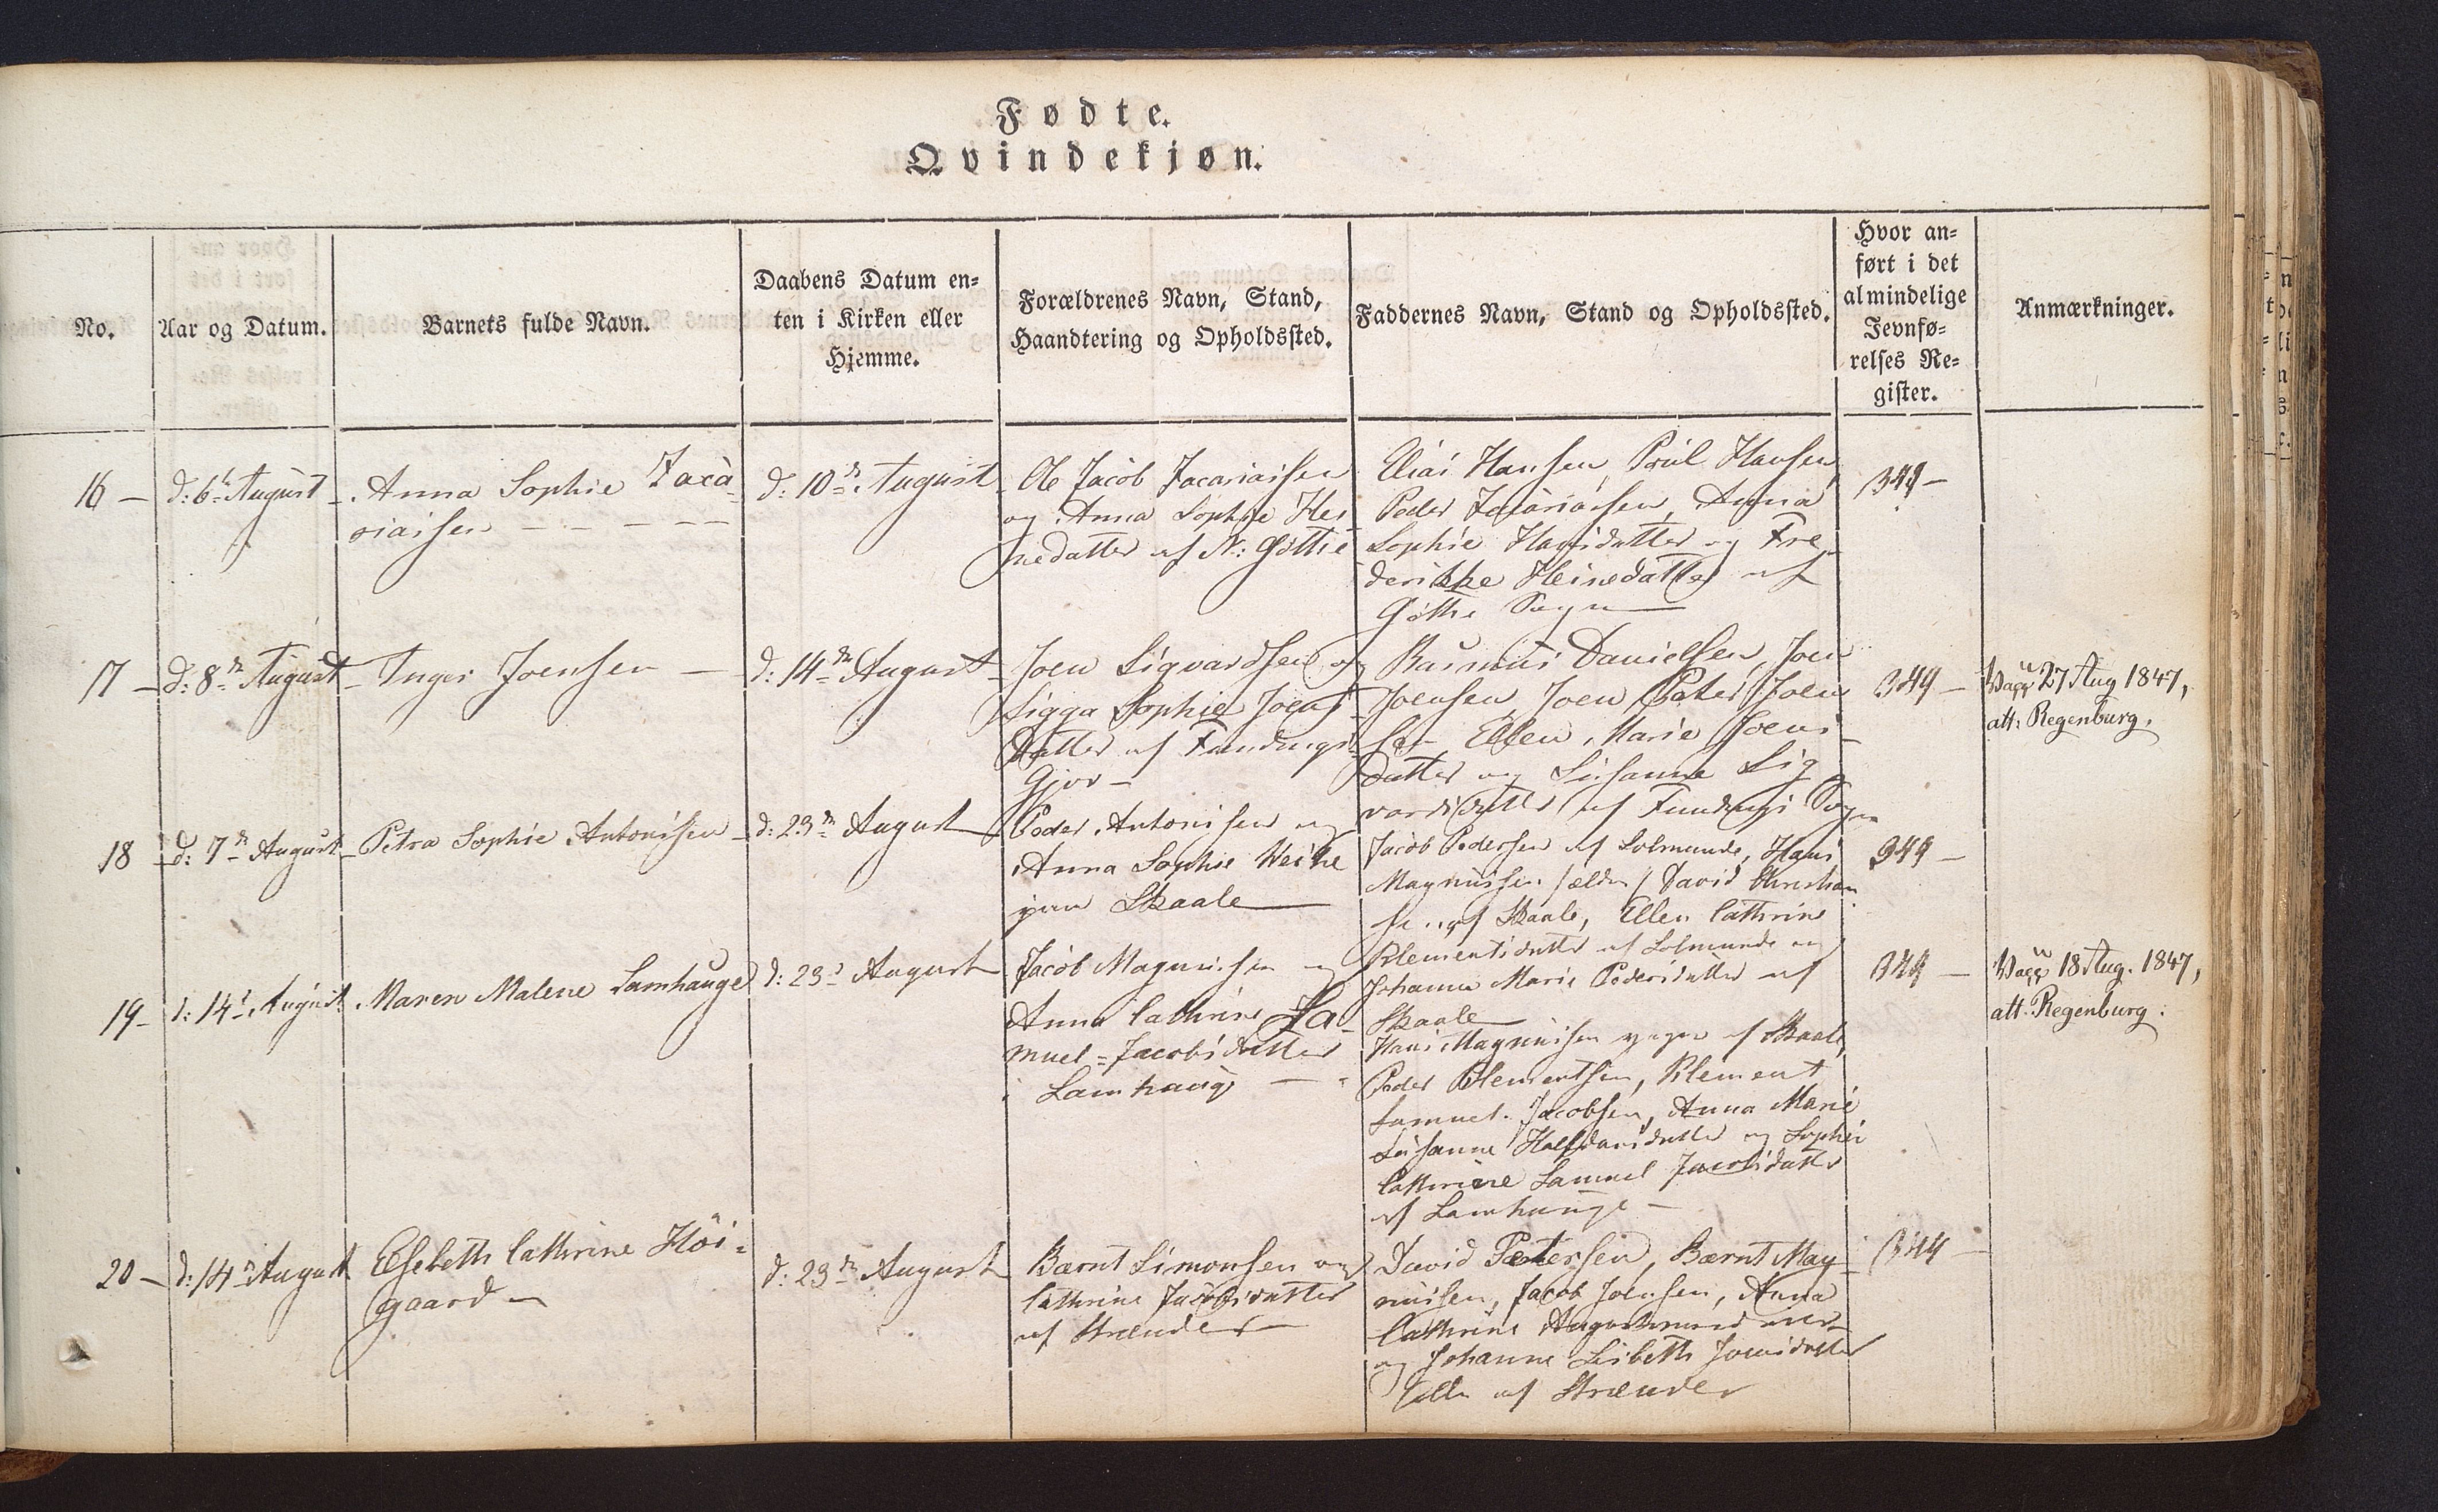 Fødte.
Qvindekjøn.
No.
Aar og Datum.
Barnets fulde Navn.
Daabens Datum en-
ten i Kirken eller
Hjemme.
Forældrenes Navn, Stand,
Haandtering og Opholdssted.
Faddernes Navn, Stand og Opholdssted.
Hvor an-
ført i det
almindelige
Jevnfø-
relses Re-
gister.
Anmærkninger.
16 —
d: 6 August
Anna Sophie Zaca-
riaisen — — — — —
d: 10de August
Ole Jacob Zacariaisen
og Anna Sophie Hei
nedatter af N: Gøthe
Elias Hansen, Poul Hansen
Peder Zacariasen, Anna
Sophie Hansdatter og Fre
derikke Heinedatter af
Gøthe Sogn
344 —
17 —
d: 8de August
Inger Joensen —
d: 14de August
Joen Sigvardsen og
Sigga Sophie Joens
datter af Fundings
Gjov —
Rasmus Danielsen, Joen
Joensen, Joen Peter Joen
sen, Ellen Marie Joens
datter og Susanne Sig
vardsdatter af Fundings Sogn
344 —
Vacc 27 Aug 1847,
att: Regenburg.
18
d: 7de August
Petra Sophie Antonisen
d: 23de August
Peder Antonisen og
Anna Sophie Weihe
paa Skaale
Jacob Pedersen af Solmunde, Hans
Magnussen /ældre/ David Christian
sen af Skaale, Ellen Cathrine
Klementsdatter af Solmunde og
Johanna Marie Pedersdatter af
Skaale
344 —
19 —
d: 14 August
Maren Malene Lamhauge
d: 23 August
Jacob Magnussen og
Anna Cathrine Sa-
muel=Jacobsdatter
i Lamhauge —
Hans Magnussen yngre af Skaale,
Peder Klementsen, Klement
Samuel Jacobsen, Anna Marie
Susanne Halfdansdatter og Sophie
Cathrine Samuel Jacobsdatter
af Lamhauge —
344 —
Vacc 18 Aug. 1847,
att. Regenburg.
20 —
d: 14 August
Elsebeth Cathrine Höi=
gaard —
d: 23de August
Bærnt Simonsen og
Cathrine Jacobsdatter
af Strænder —
David Petersen, Bærnt Mag
nussen, Jacob Joensen, Anna
Cathrine
og Johanne Lisbeth Joensdatter
alle af Strænder
344 —